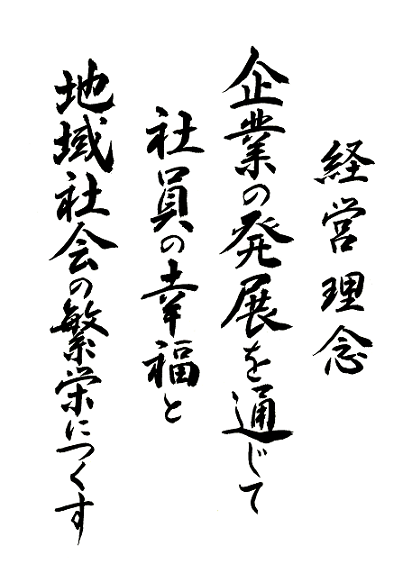 経営理念
企業の発展を通じて
社員の幸福と
地域社会の繁栄につくす